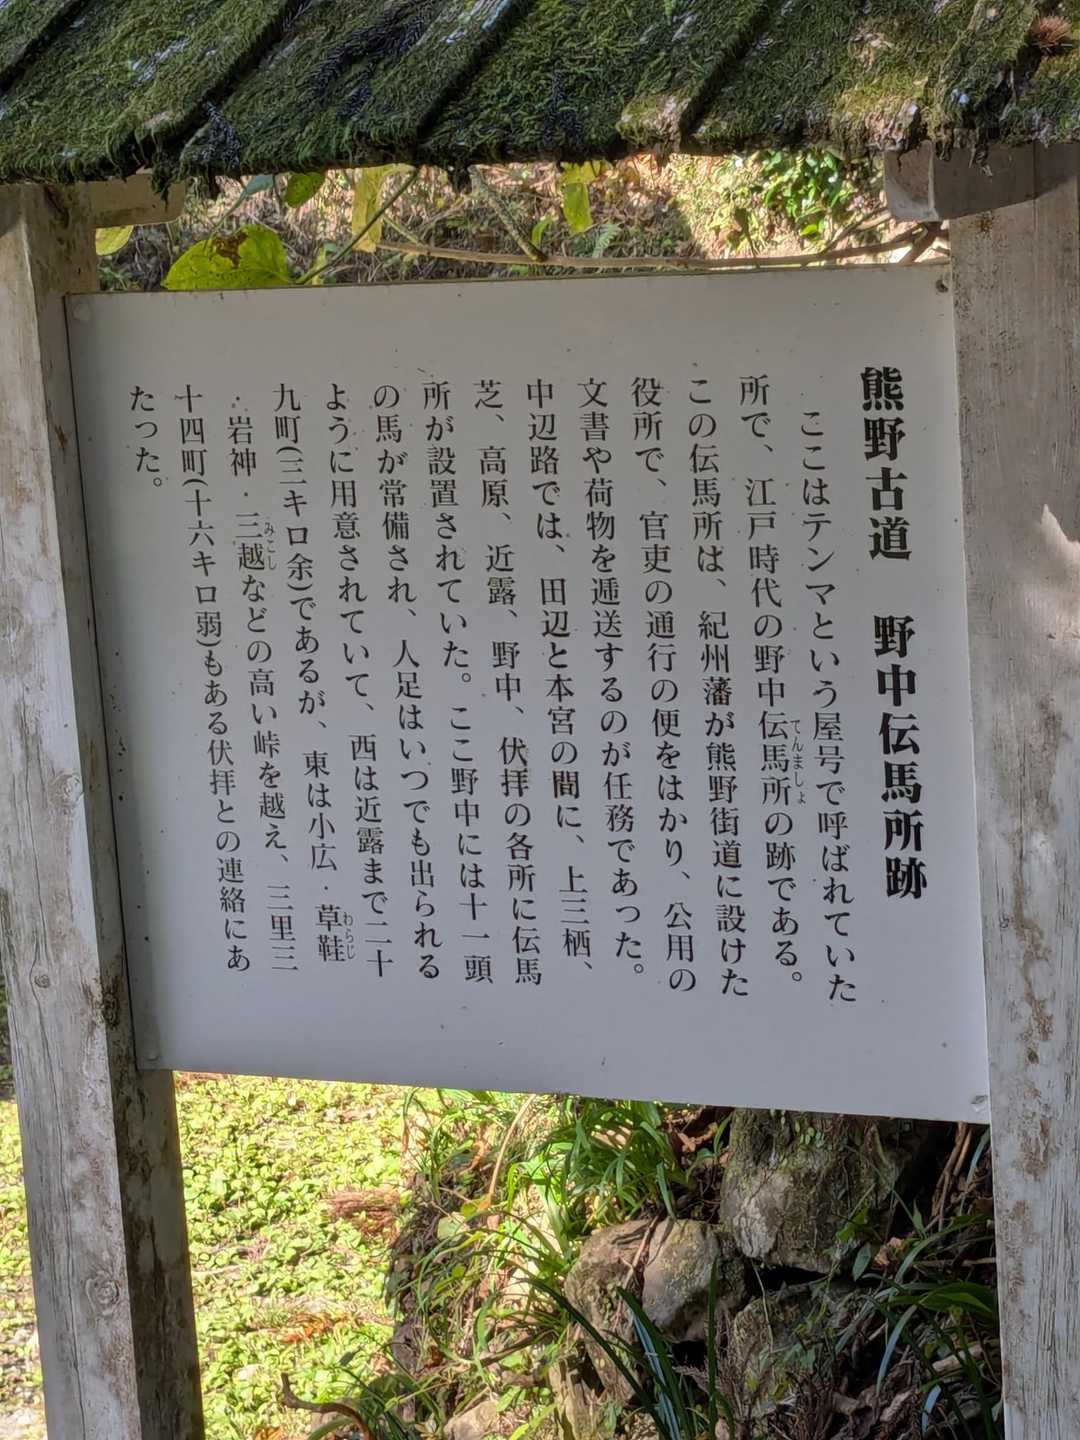 熊野古道　野中伝馬所跡
ここはテンマという屋号で呼ばれていた
所で、江戸時代の野中伝馬所の跡である。
てんましょ
この伝馬所は、紀州藩が熊野街道に設けた
役所で、官吏の通行の便をはかり、公用の
文書や荷物を逓送するのが任務であった。
中辺路では、田辺と本宮の間に、上三栖、
芝、高原、近露、野中、伏拝の各所に伝馬
所が設置されていた。ここ野中には十一頭
の馬が常備され、人足はいつでも出られる
ように用意されていて、西は近露まで二十
九町(三キロ余)であるが、東は小広・草鞋
わらじ
・岩神・三越などの高い峠を越え、三里三
みこし
十四町(十六キロ弱)もある伏拝との連絡にあ
たった。